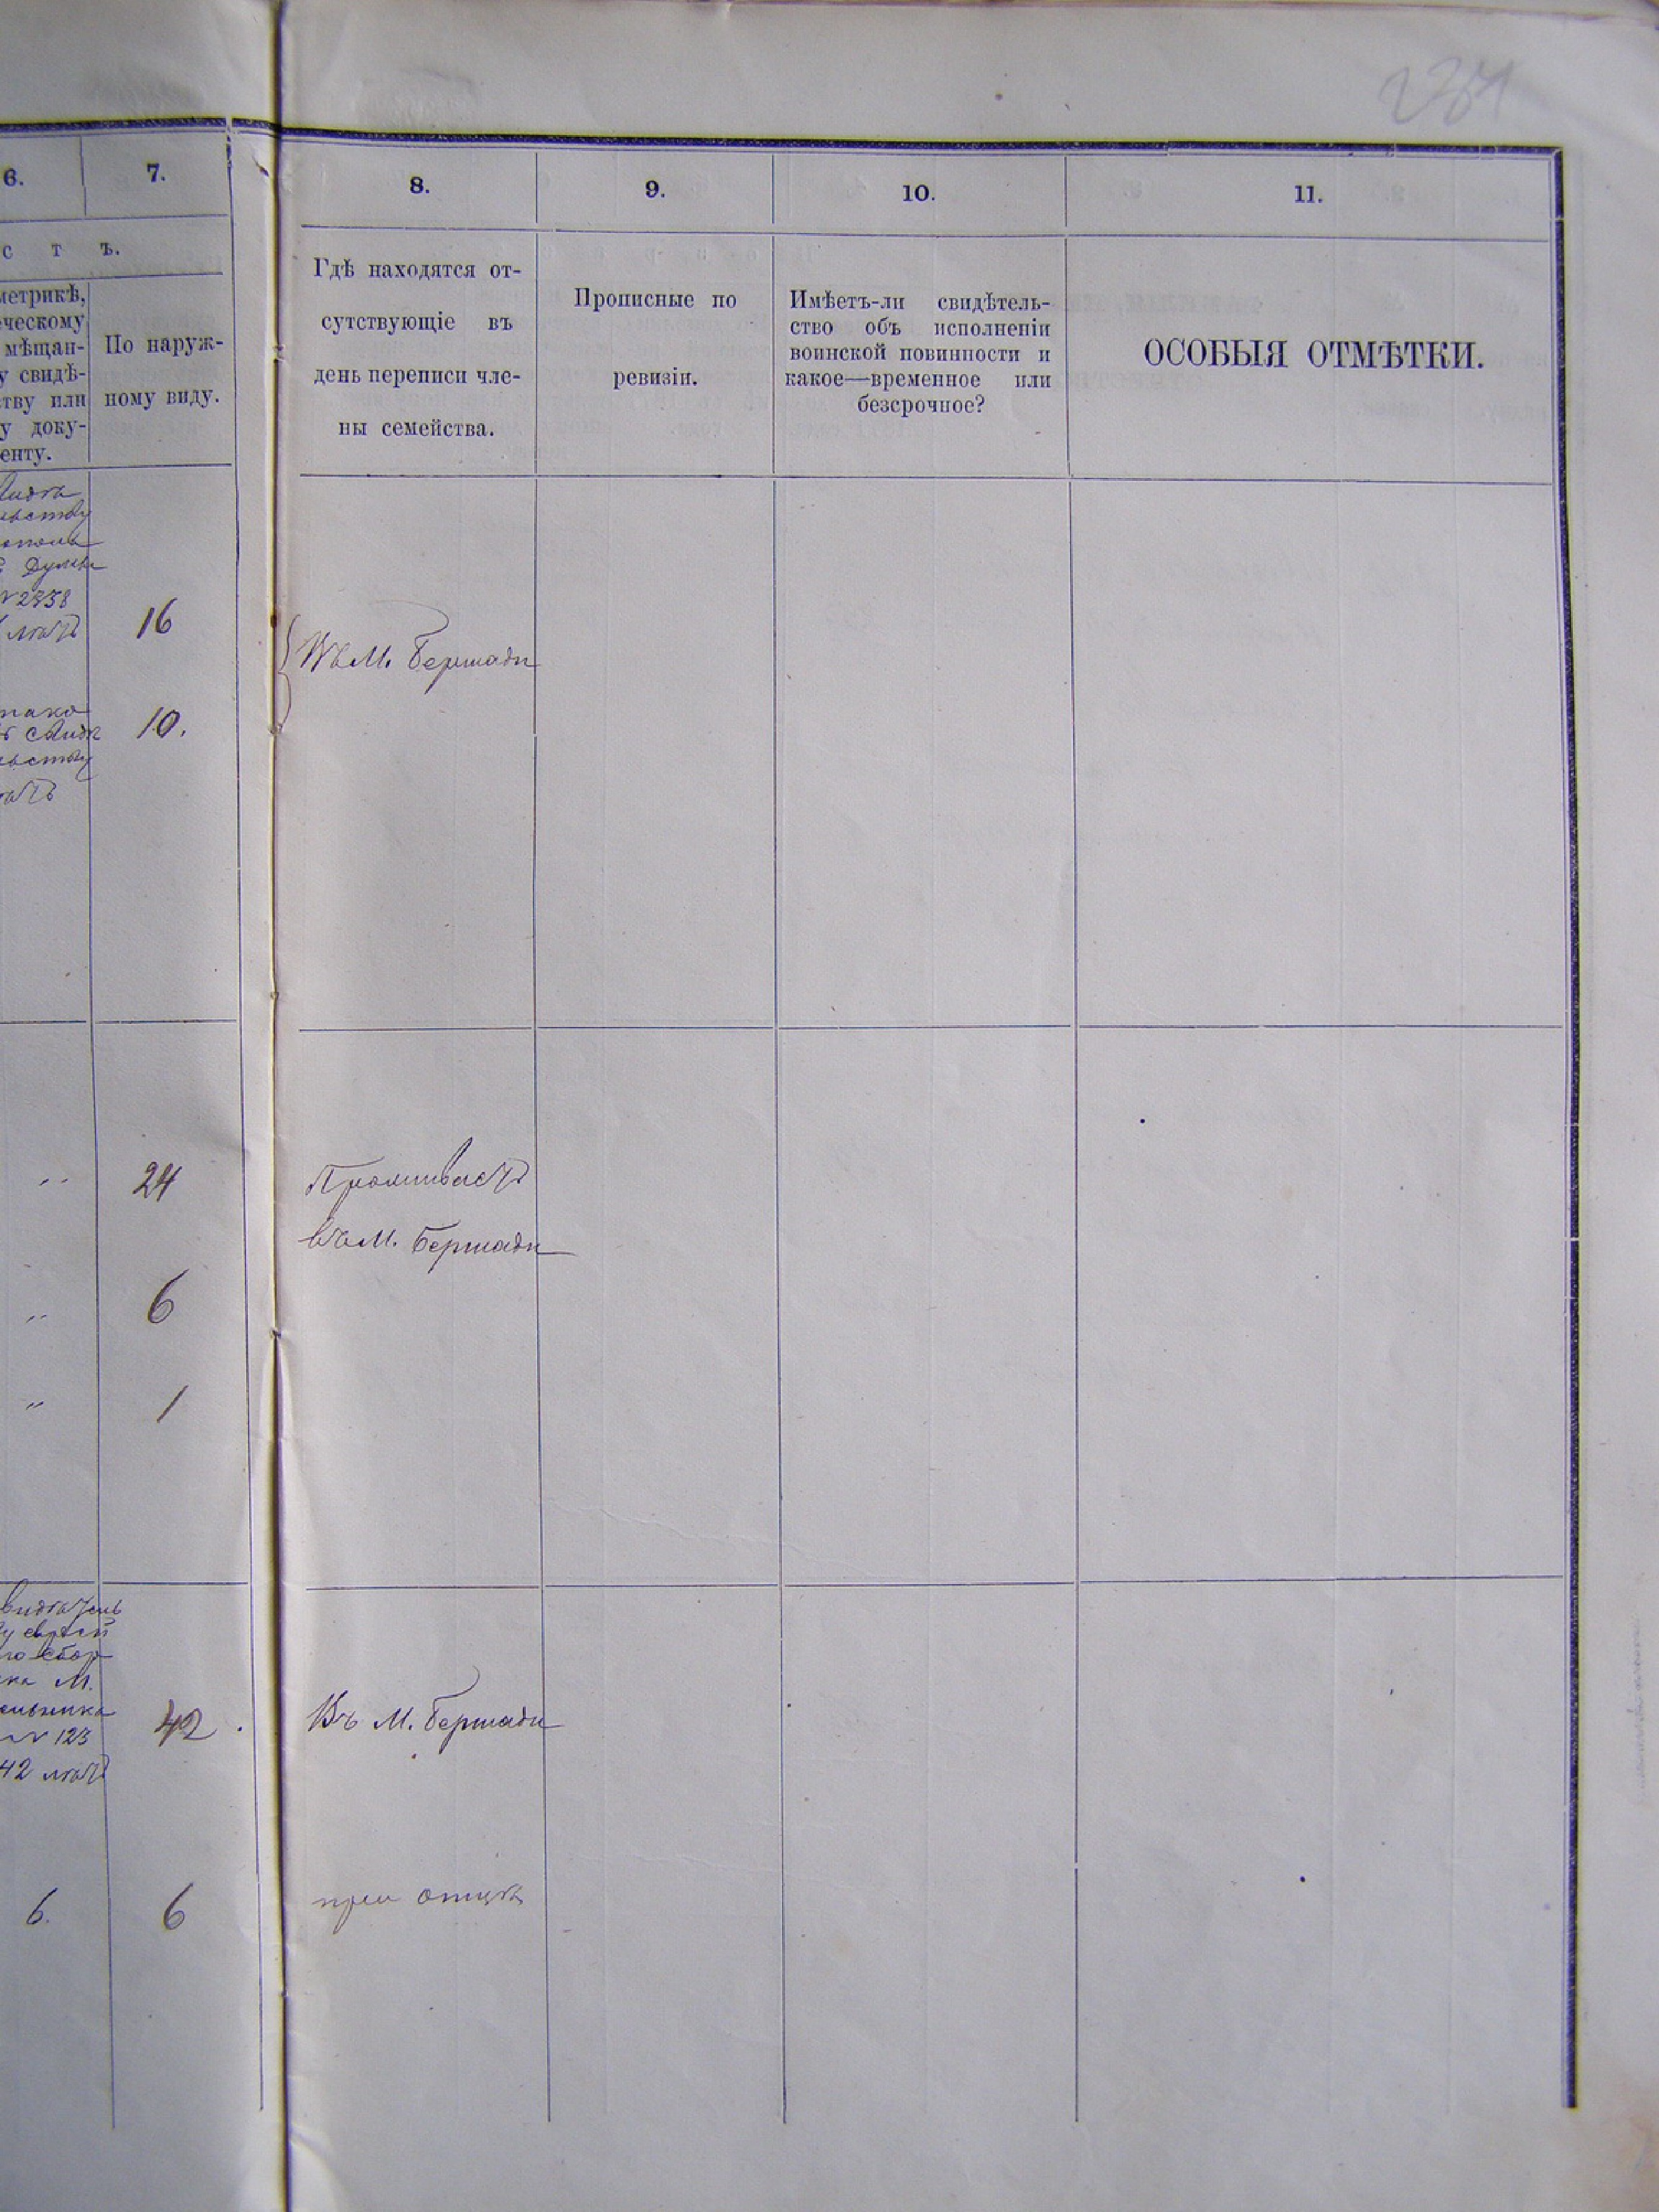 231
6.
7.
8.
9.
10.
11.
с т ъ.
метрикѣ,
ческому
мѣщан-
у свидѣ-
тву или
у доку-
енту.
По наруж-
ному виду.
Гдѣ находятся от-
сутствующіе въ
день переписи чле-
ны семейства.
Прописные по
ревизіи.
Имѣетъ-ли свидѣтель-
ство объ исполненіи
воинской повинности и
какое—временное или
безсрочное?
ОСОБЫЯ ОТМѢТКИ.
Думы
№ 2338
лѣтъ
16
Въ М. Бершади
10.
24
Проживаетъ
въ М. Бершади
6
1
видѣтель
у еврей
го сбор
ка М.
№ 123
42 лѣтъ
42.
Въ М. Бершади
6.
6
при отцѣ